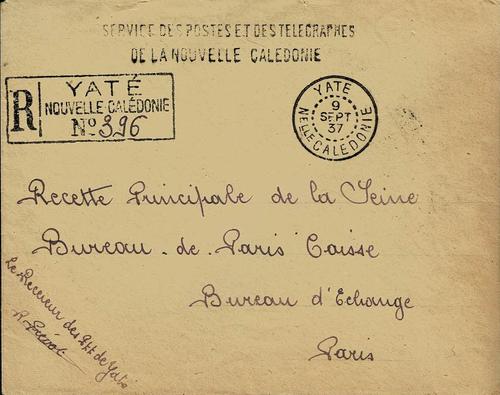 SERVICE DES POSTES ET DES TELEGRAPHES
DE LA NOUVELLE CALEDONIE
R
YATÉ
NOUVELLE CALÉDONIE
Nº 396
YATE
9
SEPT
37
NELLE CALEDONIE
Recette Principale de la Seine
Bureau de Paris Caisse
Bureau d'Echange
Paris
Le Receveur des Ptt de Yaté